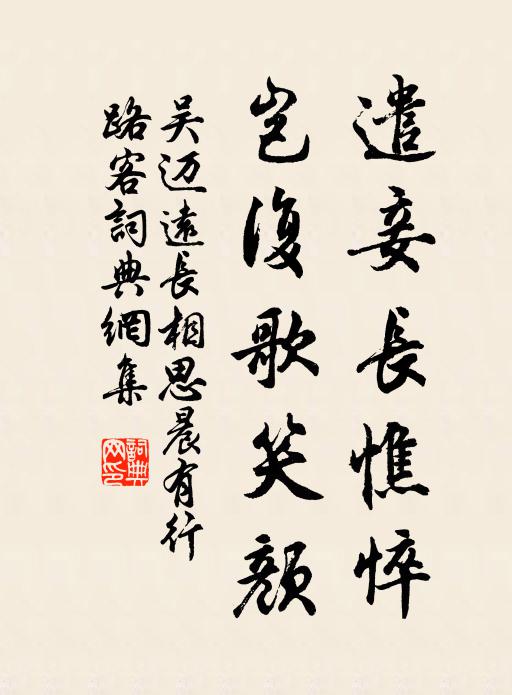 遣妾長憔悴
岂復歌笑顏
吴迈遠長相思晨有行
路客詞典網集
詞典网印